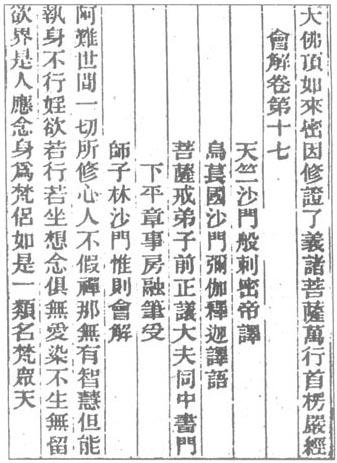 大佛頂如來密因修證了義諸菩薩萬行首楞嚴經
會解卷第十七
天竺沙門般剌密帝譯
烏萇國沙門彌伽釋迦譯語
菩薩戒弟子前正議大夫同中書門
下平章事房融筆受
師子林沙門惟則會解
阿難世間一切所修心人不假禪那無有智慧但能
執身不行婬欲若行若坐想念俱無愛染不生無留
欲界是人應念身爲梵侶如是一類名梵衆天